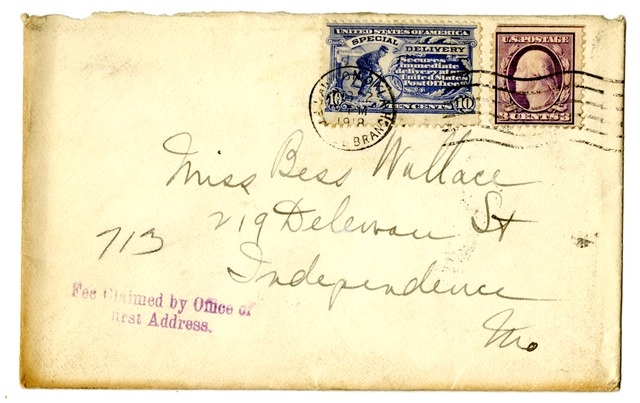 UNITED STATES OF AMERICA
SPECIAL DELIVERY
Secures
immediate
delivery at a
United States
Post Office
10 TEN CENTS 10
U.S. POSTAGE
3 CENTS 3
1918
BRANCH
Miss Bess Wallace
219 Delewau St
Independence
Mo
713
Fee Claimed by Office of
First Address.